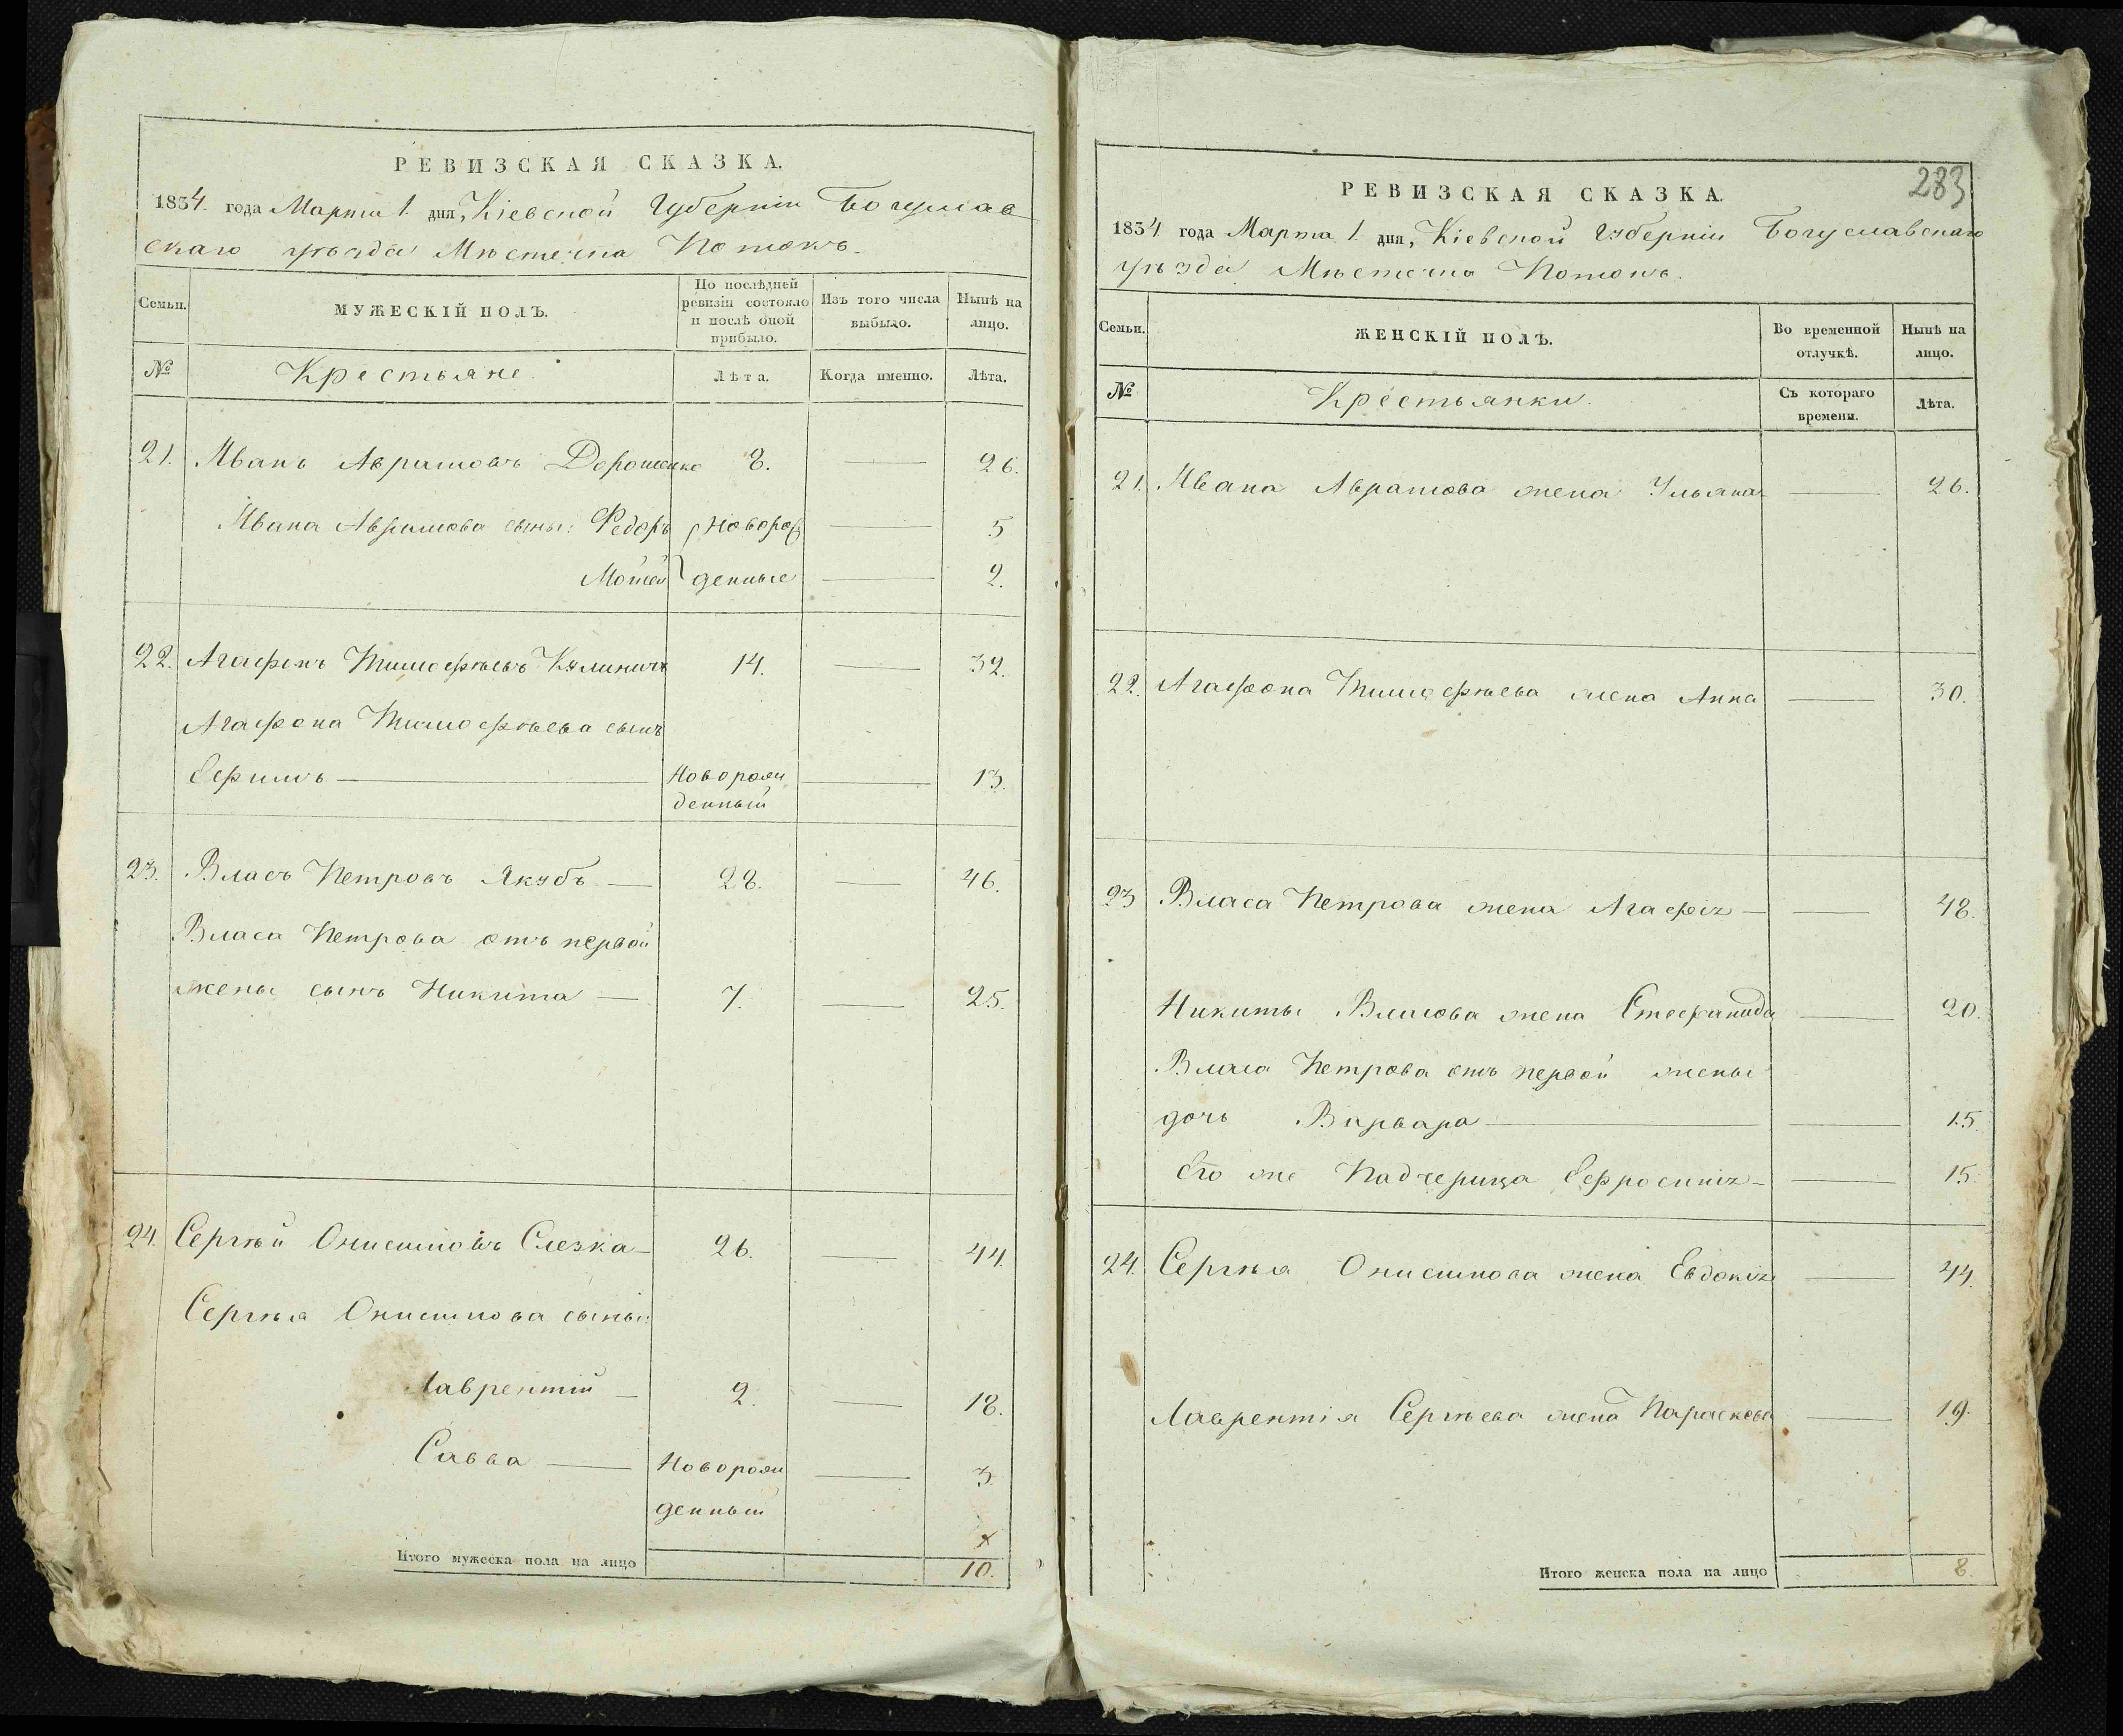 РЕВИЗСКАЯ СКАЗКА.
1834. года Марта 1. дня, Кіевской Губерніи Богуслав
скаго уѣзда Мѣстечка Потокъ.
Семьи. МУЖЕСКІЙ ПОЛЪ. По послѣдней ревизіи состояло и послѣ оной прибыло. Изъ того числа выбыло. Нынѣ на лицо.
№ Крестьяне. Лѣта. Когда именно. Лѣта.
21. Иванъ Аврамовъ Дорошенко 8. — 26.
Ивана Аврамова сыны: Федоръ Новорож — 5
Мойсей денные — 2.
22. Агафонъ Тимофѣевъ Кулиничъ 14. — 32.
Агафона Тимофѣева сынъ
Ефимъ — Новорож — 13.
денный
23. Власъ Петровъ Якубъ — 28. — 46.
Власа Петрова отъ первой
жены сынъ Никита — 7. — 25.
24. Сергѣй Онисимовъ Слезка — 26. — 44.
Сергѣя Онисимова сыны:
Лаврентій — 2. — 18.
Савва — Новорож — 3.
денный
х
Итого мужеска пола на лицо 10.
283
РЕВИЗСКАЯ СКАЗКА.
1834 года Марта 1. дня, Кіевской Губерніи Богуславскаго
уѣзда Мѣстечка Потокъ.
Семьи. ЖЕНСКІЙ ПОЛЪ. Во временной отлучкѣ. Нынѣ на лицо.
№ Крестьянки. Съ котораго времени. Лѣта.
21. Ивана Аврамова жена Ульяна — 26.
22. Агафона Тимофѣева жена Анна — 30.
23 Власа Петрова жена Агафія — — 48.
Никиты Власова жена Стефанида — 20.
Власа Петрова отъ первой жены
дочь Варвара — — 15.
Его же Падчерица Ефросинія — — 15.
24. Сергѣя Онисимова жена Евдокія — 44.
Лаврентія Сергѣева жена Параскева — 19.
Итого женска пола на лицо 8.